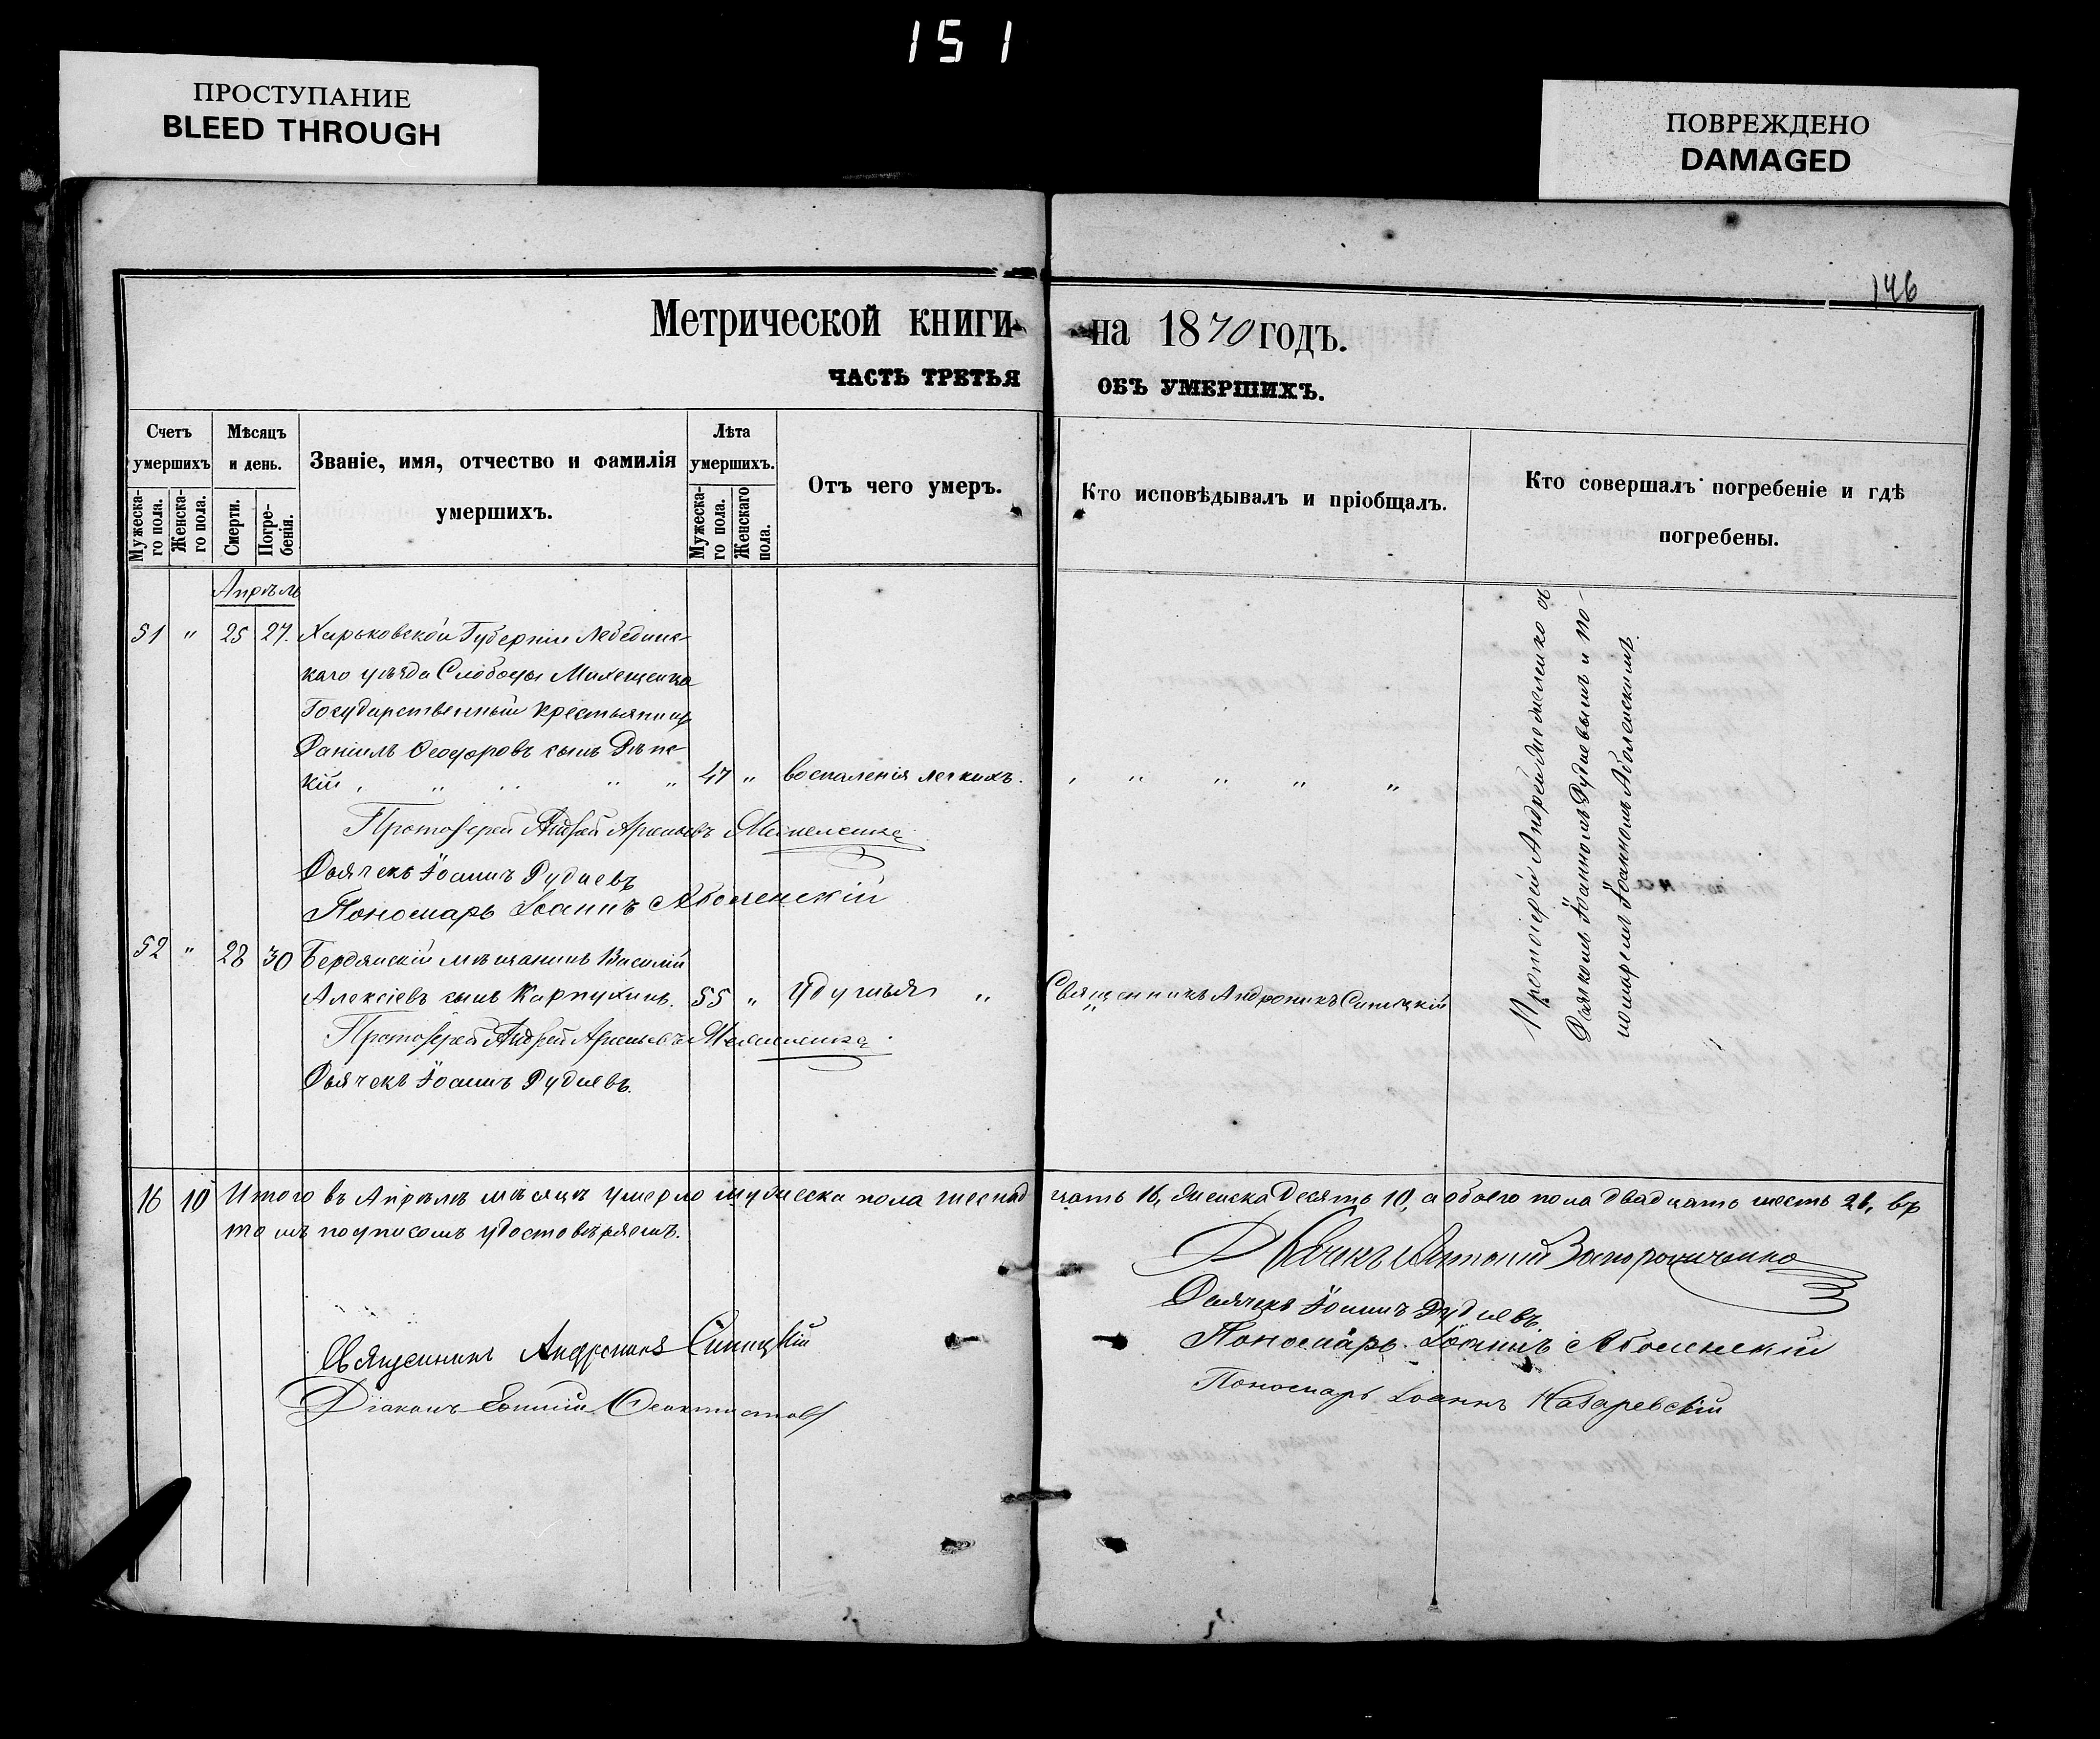 151
ПРОСТУПАНИЕ
BLEED THROUGH
ПОВРЕЖДЕНО
DAMAGED
146
Метрической книги на 1870 годъ.
ЧАСТЬ ТРЕТЬЯ ОБЪ УМЕРШИХЪ.
Счетъ умершихъ
Мужеска-го пола.
Женска-го пола.
Мѣсяцъ и день.
Смерти.
Погре-бенія.
Званіе, имя, отчество и фамилія умершихъ.
Лѣта умершихъ.
Мужеска-го пола.
Женскаго пола.
Отъ чего умеръ.
Кто исповѣдывалъ и пріобщалъ.
Кто совершалъ погребеніе и гдѣ погребены.
Апрѣль
51 " 25 27. Харьковской Губерніи Лебединс-
каго уѣзда Слободы
Государственный крестьянинъ
Даніилъ Ѳеодоровъ сынъ
кій 47 " воспаленія легкихъ.
Протоіерей Андрей Арсеньевъ
Дьячекъ Іоаннъ Рудневъ
Пономарь Іоаннъ Аболенскій
52 " 28 30 Бердянскій мѣщанинъ Василій
Алексіевъ сынъ Карпухинъ. 55 " Удушья " Священникъ Андроникъ Синицкій
Протоіерей Андрей Арсеньевъ
Дьячекъ Іоаннъ Рудневъ.
Протоіерей Андрей съ
Дьячкомъ Іоанномъ Рудневымъ и по-
номаремъ Іоанномъ Аболенскимъ.
16 10 Итого въ Апрѣлѣ мѣсяцѣ умерло мужеска пола шестнад цать 16, женска десять 10, а обоего пола двадцать шесть 26, въ
томъ подписомъ удостовѣряемъ.
Священникъ Андроникъ Синицкій
Діаконъ Ѳеоктистовъ
Дьячекъ Антоній
Дьячекъ Іоаннъ Рудневъ.
Пономарь Іоаннъ Аболенскій
Пономарь Іоаннъ Назаревскій